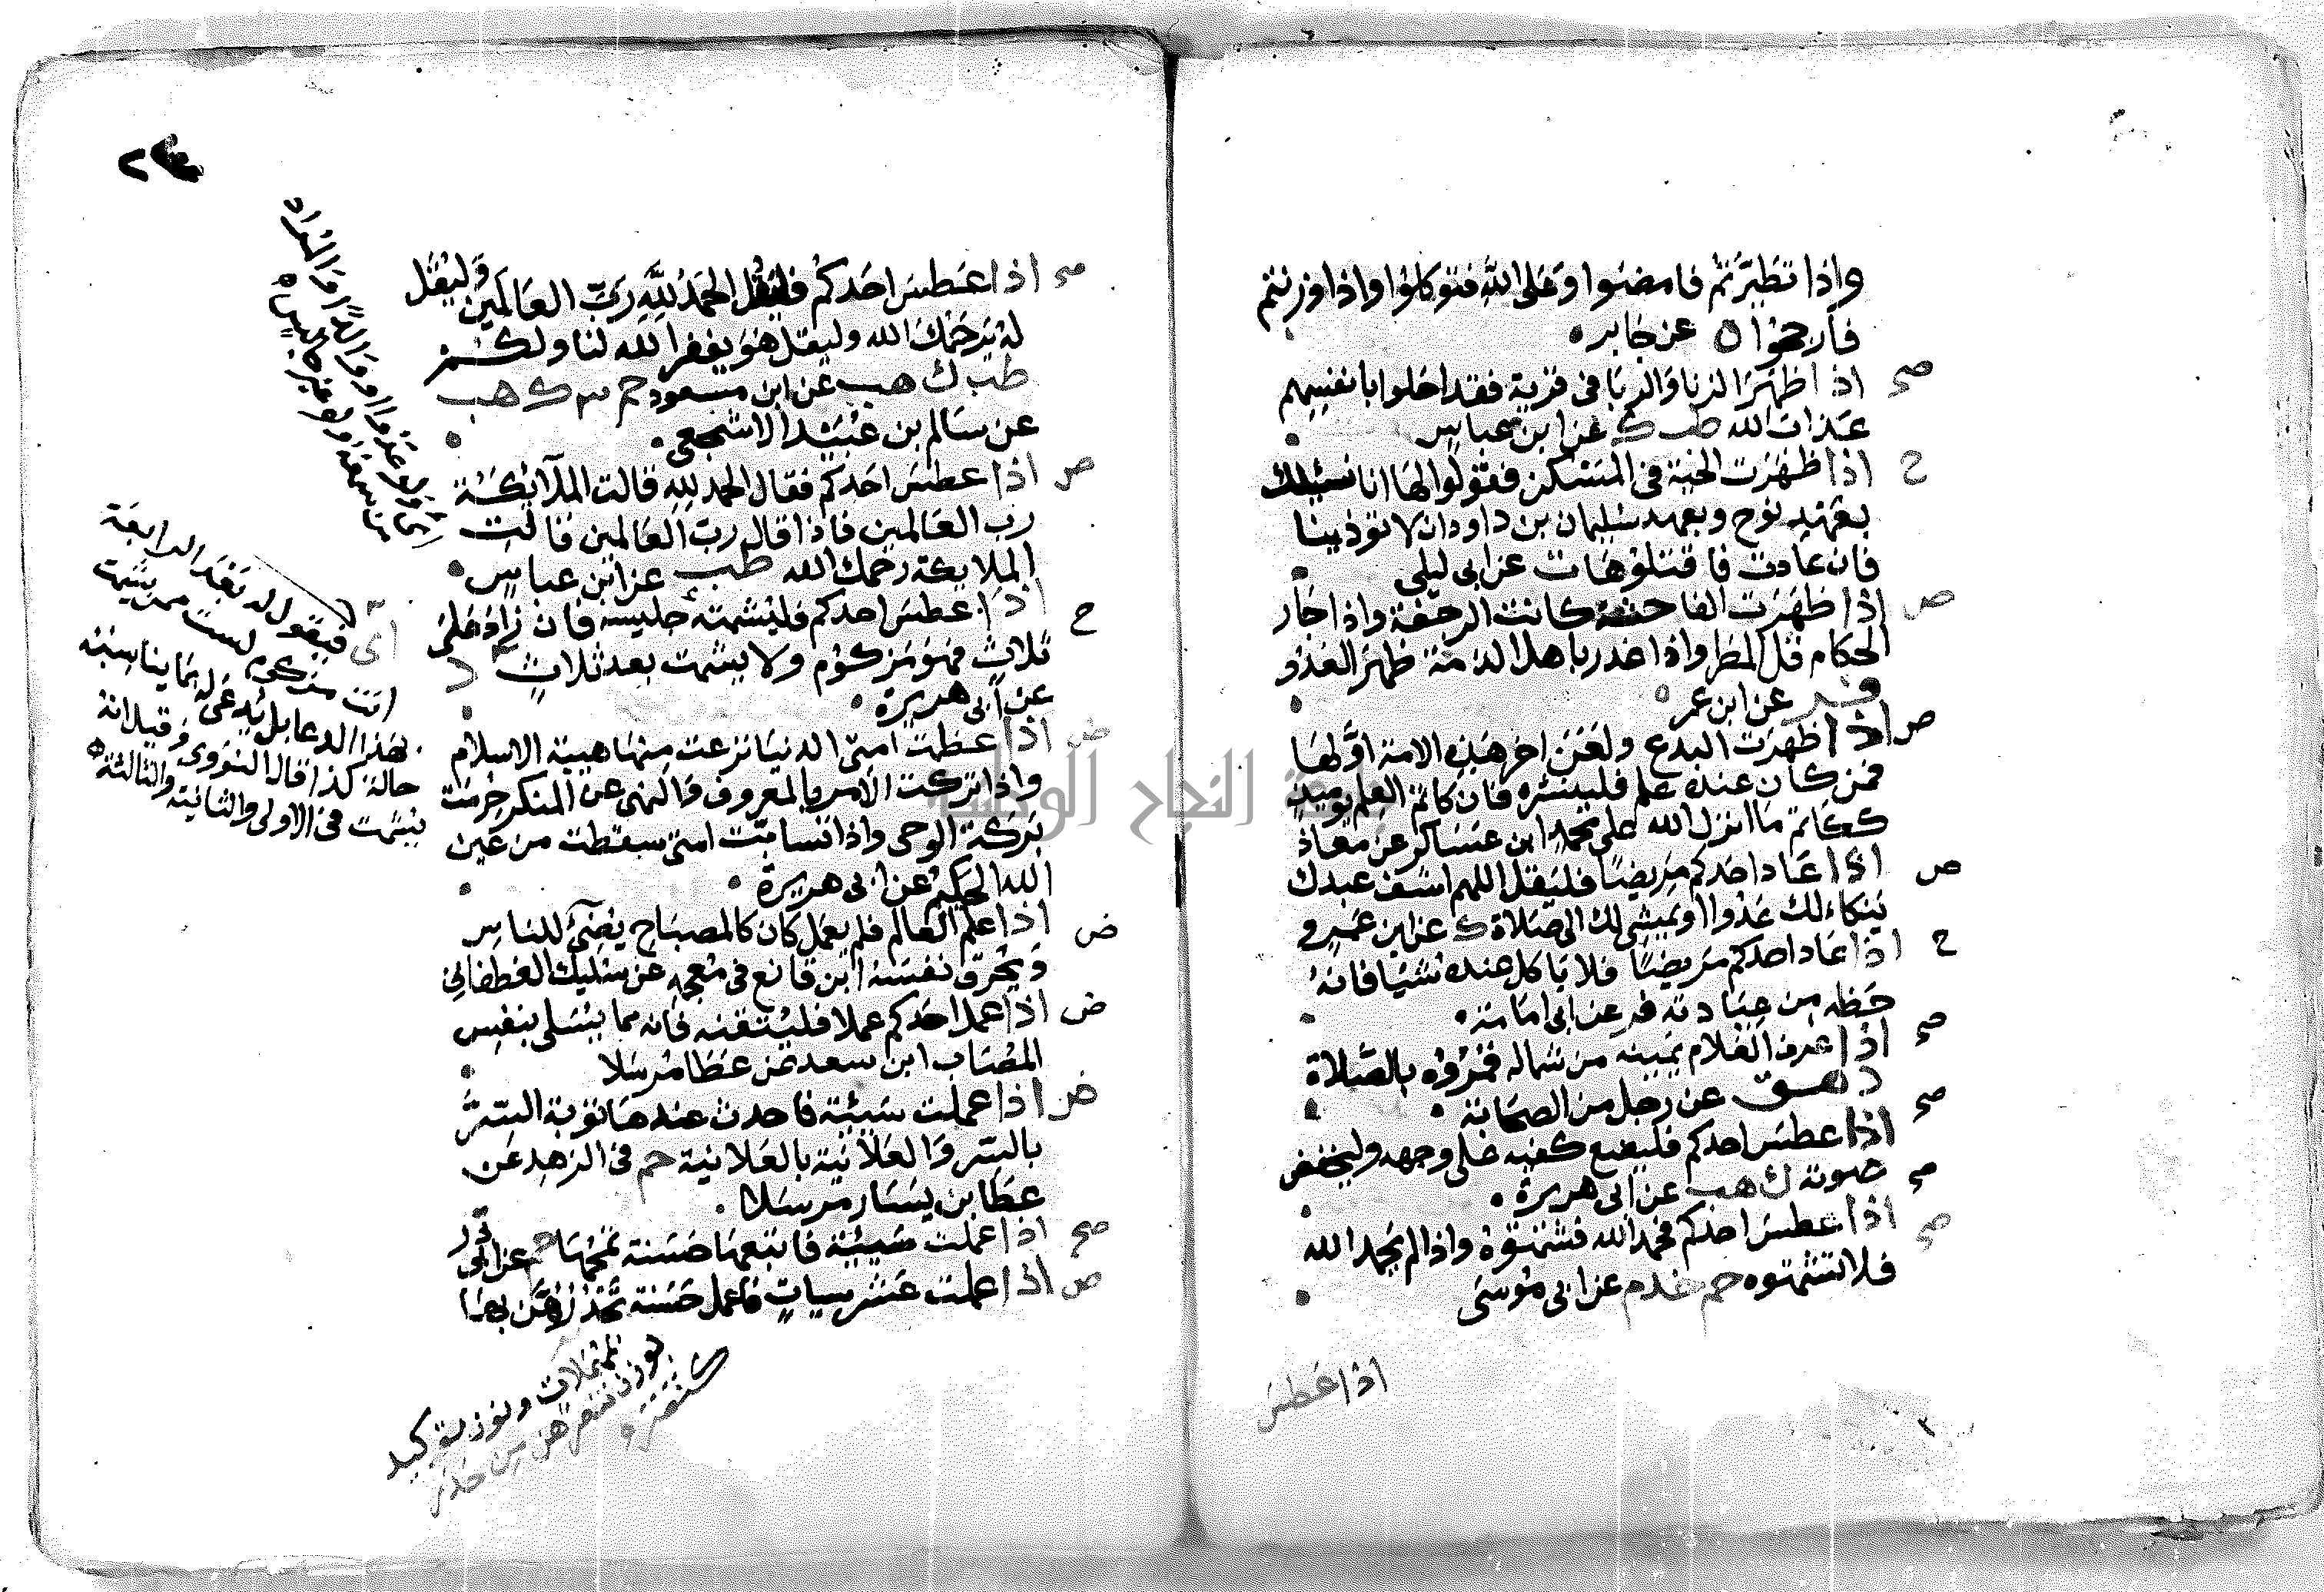 واذا تطيرتم فامضوا وعلى الله فتوكلوا واذا وزنتم
فارجحوا ه عن جابر
صح اذا ظهر الزنا والربا فى قرية فقد احلوا بانفسهم
عذاب الله طب ك عن ابن عباس
ح اذا ظهرت الحية فى المسكن فقولوا لها انا نسئلك
بعهد نوح وبعهد سليمان بن داود ان لا توذينا
فان عادت فاقتلوها ت عن ابى ليلى
ض اذا ظهرت الفاحشة كانت الرجفة واذا جار
الحكام قل المطر واذا غدر باهل الذمة ظهر العدو
فر عن ابن عمر
ض اذا ظهرت البدع ولعن اخر هذه الامة اولها
فمن كان عنده علم فلينشره فان كاتم العلم يوميذ
ككاتم ما انزل الله على محمد ابن عساكر عن معاذ
ض اذا عاد احدكم مريضا فليقل اللهم اشف عبدك
ينكاء لك عدوا او يمشى لك الى صلاة ك عن ابن عمرو
ح اذا عاد احدكم مريضا فلا ياكل عنده شيئا فانه
حظه من عيادته فر عن ابى امامة
صح اذا عرف الغلام يمينه من شماله فمروه بالصلاة
د هق عن رجل من الصحابة
صح اذا عطس احدكم فليضع كفيه على وجهه وليخفض
صوته ك هب عن ابى هريرة
صح اذا عطس احدكم فحمد الله فشمتوه واذا لم يحمد الله
فلا تشمتوه حم خد م عن ابى موسى
اذا عطس
صح اذا عطس احدكم فليقل الحمد لله رب العالمين وليقل
له يرحمك الله وليقل هو يغفر الله لنا ولكم
طب ك هب عن ابن مسعود حم ٣ ك هب
عن سالم بن عبيد الاشجعى
ض اذا عطس احدكم فقال الحمد لله قالت الملآئكة
رب العالمين فاذا قال رب العالمين قالت
الملايكة رحمك الله طب عن ابن عباس
ح اذا عطس احدكم فليشمته جليسه فان زاد على
ثلاث فهو مزكوم ولا يشمت بعد ثلاث د
عن ابى هريرة
ض اذا عظمت امتى الدنيا نزعت منها هيبة الاسلام
واذا تركت الامر بالمعروف والنهى عن المنكر حرمت
بركة الوحى واذا تسابت امتى سقطت من عين
الله الحكيم عن ابى هريرة
ض اذا علم العالم فلم يعمل كان كالمصباح يضئ للناس
ويحرق نفسه ابن قانع فى معجمه عن سليك الغطفانى
ض اذا عمل احدكم عملا فليتقنه فانه مما يسلى بنفس
المصاب ابن سعد عن عطا مرسلا
ض اذا عملت سيئة فاحدث عندها توبة السر
بالسر والعلانية بالعلانية حم فى الزهد عن
عطا بن يسار مرسلا
صح اذا عملت سيئة فاتبعها حسنة تمحها حم عن ابى ذر
ض اذا عملت عشر سيات فاعمل حسنة تحدرهن بها
اى ولو عدوا او والدا وما المراد
من سمعه ولو غير جليس
اى فيقول له بعد الرابعة
انت مزكوم لست ممن يشمت
بهذا الدعا بل يدعى له بما يناسبه
حاله كذا قاله النووى وقيل انه
يشمت فى الاولى والثانية والثالثة
جامعة النجاح الوطنية